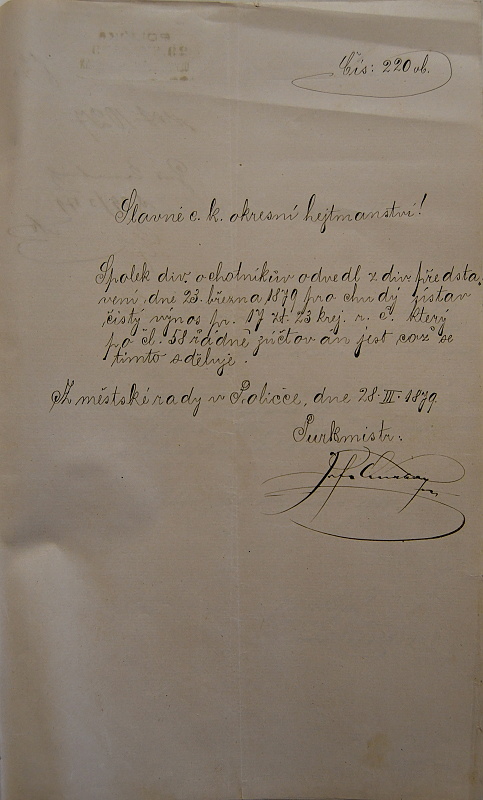 Čís: 220 ob.
Slavné c. k. okresní hejtmanství!
Spolek div. ochotníkův odvedl z div. představení, dne 23. března 1879 pro chudý ústav
čistý výnos pr. 17 zl. 23 krej. r. č. který
po čl. 58 řádně zúčtován jest což se
tímto sděluje.
Z městské rady v Poličce, dne 28. III. 1879
Purkmistr: